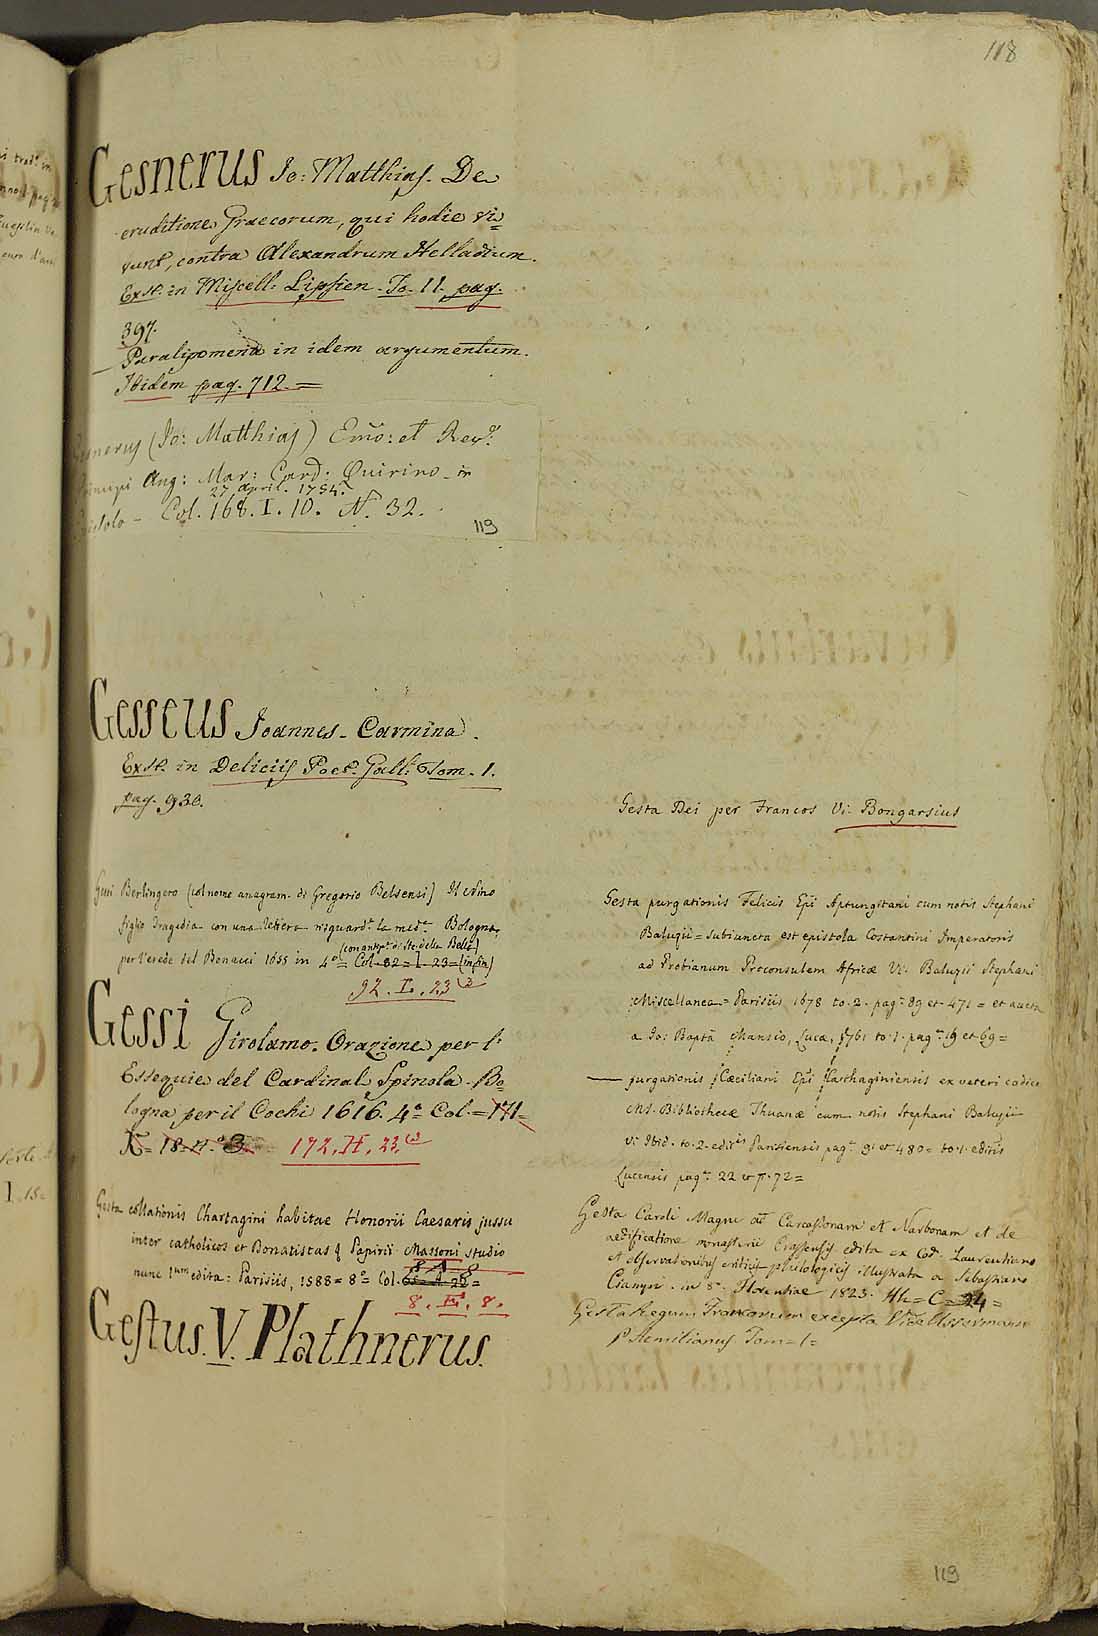 118
Gesnerus Jo: Matthias. De
eruditione Graecorum, qui hodie vi=
vunt, contra Alexandrum Helladium.
Exst. in Miscell: Lipsien. To. 11. pag.
397.
— Paralipomena in idem argumentum.
Ibidem pag. 712. =
Gesnerus (Jo: Matthias) Emo: et Rev.o
Principi Ang: Mar: Card. Quirino - in
27 april. 1754.
Col. 168. I. 10. N. 32.
119
Gesseus Joannes - Carmina.
Exst. in Deliciis Poet. Gall: Tom. 1.
pag. 930.
Gessi Berlingero (col nome anagram. di Gregorio Belsensi) Il
figlio Tragedia con una lettera risguard.e la med.a Bologna,
(con antip. di Ste. della Bella)
per l'erede del Benacci 1655 in 4o = Col. 82 = I. 23 = (in fin)
92. I. 23 (3
Gessi Girolamo. Orazione per l'
Essequie del Cardinal Spinola. Bo=
logna per il Cochi 1616. 4o Col. = 171 =
K = 18. n. 3. 172. H. 22. (3
Gesta collationis Chartagini habitae Honorii Caesaris jussu
inter catholicos et Donatistas Papirii Massoni studio
nunc 1um edita: Parisiis, 1588 = 8o = Col.
8. E. 8.
Gestus. V. Plathnerus.
Gesta Dei per Francos Vi. Bongarsius
Gesta purgationis Felicis Epi Aptungitani cum notis Stephani
Baluzii = subiuncta est epistola Costantini Imperatoris
ad Probianum Proconsulem Africæ Vi. Baluzii Stephani
Miscellanea = Parisiis 1678 to. 2. pag. 89 et 471 = et aucta
a Jo: Bapta Mansio, Lucæ, 1761 to. 1. pag. 19 et 69 =
— purgationis Cæciliani Epi Carthaginiensis ex veteri codice
MS. Bibliothecæ Thuanæ cum notis Stephani Baluzii
Vi Ibid. to. 2. edit.is Parisiensis pag. 81 et 480 = to. 1. editis
Lucensis pag. 22 et p. 72 =
Gesta Caroli Magni ad Carcassonam et Narbonam et de
aedificatione monasterii Crassensis edita ex Cod. Laurentiano
et observationibus philologicis illustrata a Sebastiano
Ciampi. in 8o Florentiae 1823. = C = 24 =
Gesta Regum Francorum excepta
P. Aemilianus Tom = 1 =
119